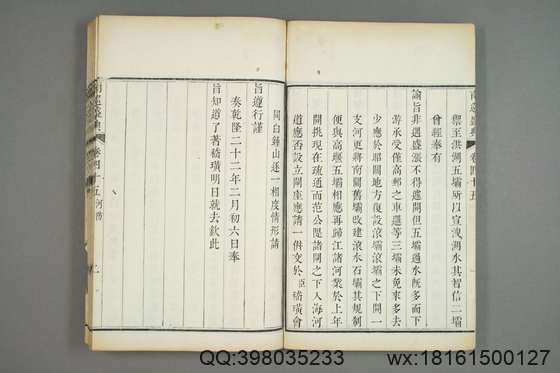 禦至洪湖五壩所以宣洩湖水其智信二壩
曾經奉有
諭旨非遇盛漲不得遽開但五壩過水旣多而下
游承受僅高郵之車邏等三壩未免來多去
少應於昭關地方復設滾壩滾壩之下開一
支河更將南關舊壩改建滾水石壩其規制
便與高堰五壩相應再歸江諸河業於上年
開挑現在疏通而范公隄諸閘之下入海河
道應否設立閘座應請一併交於臣嵇璜會
同白鍾山逐一相度情形請
旨遵行謹
奏乾隆二十二年二月初六日奉
旨知道了著嵇璜明日就去欽此
南巡盛典
卷四十五
南巡盛典
卷四十五 河防
QQ:398035233
wx:18161500127